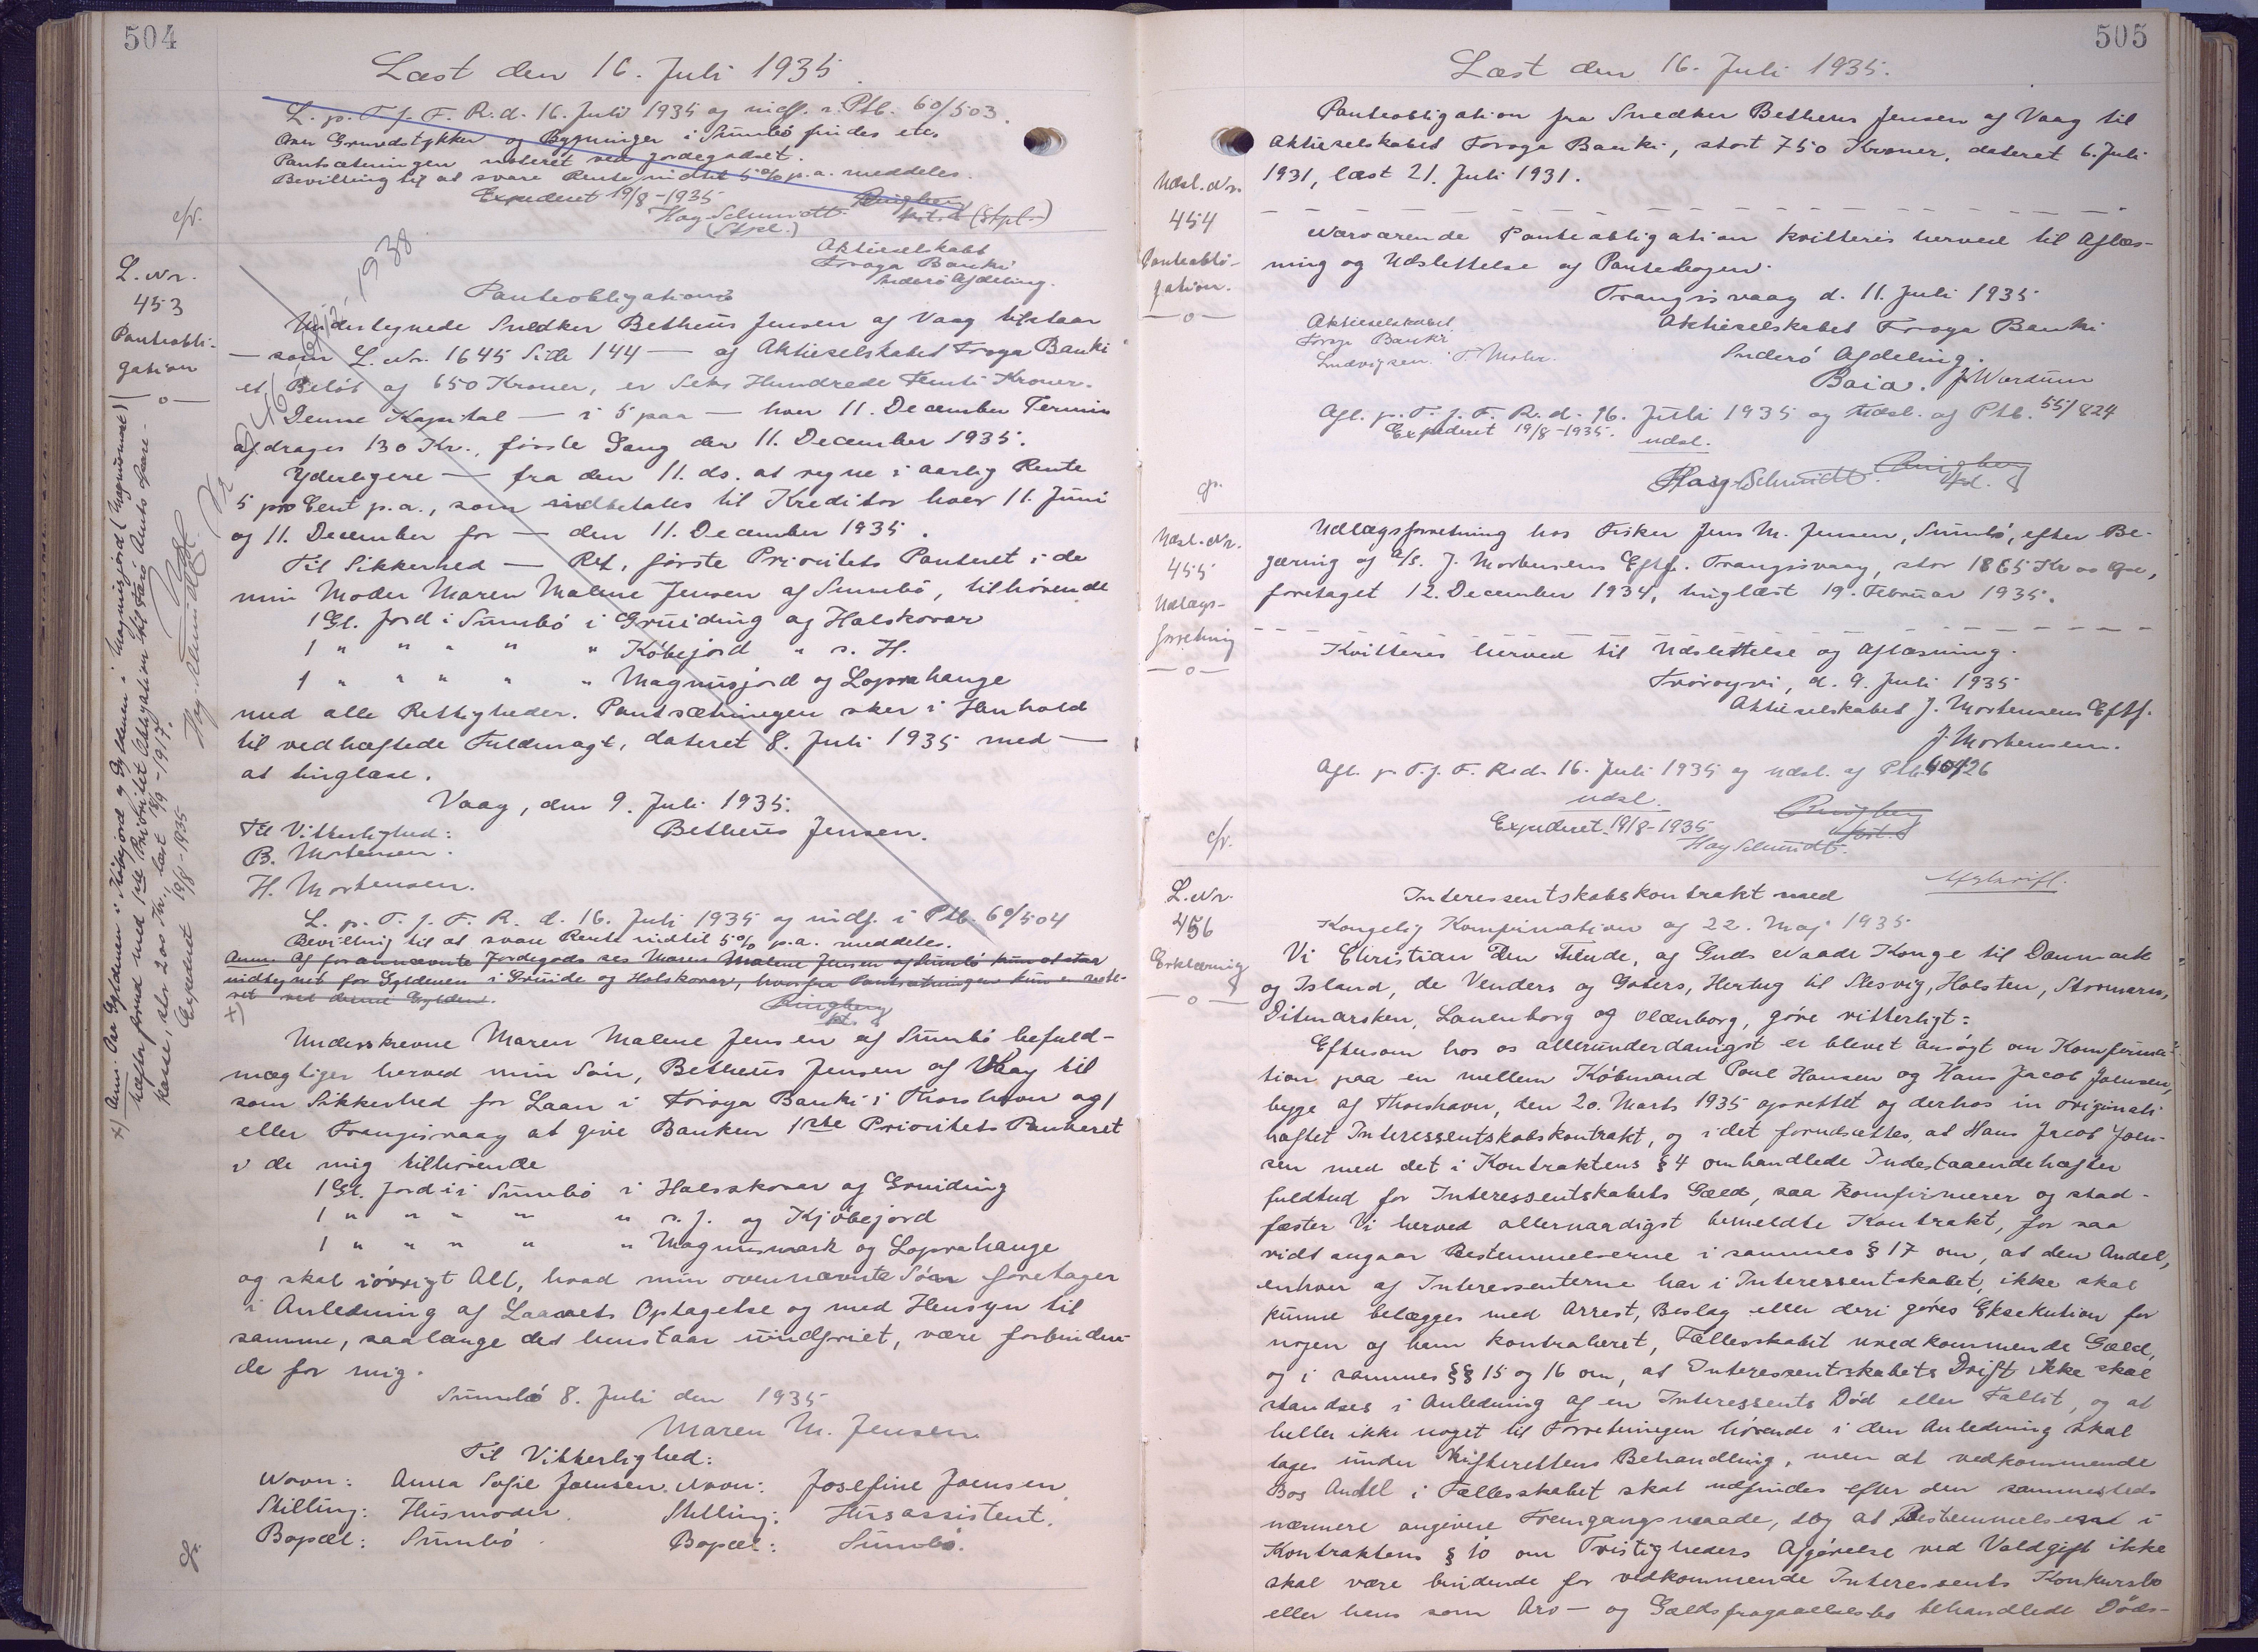 504
Læst den 16. Juli 1935.
L. p. T. f. F. R. d. 16. Juli 1935 og indf. i Ptb. 60/503.
Om Grundstykker og Bygninger i Sumbö findes etc.
Pantsætningen noteret ved Jordegodset.
Bevilling til at svare Rente indtil 5% p.a. meddeles.
Expederet 19/8-1935
Hoy-Schmidt
Ringberg
(Stpl.)
cfr.
L. Nr.
453
Panteobli-
gation
Aktieselskabet
Föroya Banki
Suderö Afdeling.
Panteobligation
Undertegnede Snedker Betheus Jensen af Vaag tilstaar
— som L. Nr. 1645 Side 144 — af Aktieselskabet Föroya Banki
et Beløb af 650 Kroner, er Seks Hundrede Femti Kroner.
Denne Kapital — i 5 paa — hver 11. December Termin
afdrages 130 Kr., første Gang den 11. December 1935.
Yderligere — fra den 11. ds. at regne i aarlig Rente
5 pro Cent p.a., som indbetales til Kreditor hver 11. Juni
og 11. December for — den 11. December 1935.
Til Sikkerhed — Ret, første Prioritets Panteret i de
min Moder Maren Malene Jensen af Sumbö, tilhørende
1 Gl. Jord i Sumbö i Gruiding og Halskovar
1 " " " " " Købejord " s. H.
1 " " " " " Magnusjord og Loprahange
med alle Rettigheder. Pantsætningen sker i Henhold
til vedhæftede Fuldmagt, dateret 8. Juli 1935 med —
at tinglæse.
Vaag, den 9. Juli 1935.
Til Vitterlighed:
Betheus Jensen.
B. Mortensen.
H. Mortensen.
L. p. T. f. F. R. d. 16. Juli 1935 og indf. i Ptb. 60/504
Bevilling til at svare Rente indtil 5% p.a. meddeles.
Anm. Af forannævnte Jordegods ses Maren Malene Jensen af Sumbö kun at staa
indtegnet for Gyldenen i Gruide og Halskovar, hvorfra Pantsætningen kun er note-
ret ved denne Gylden.
+)
Ringberg
Underskrevne Maren Malene Jensen af Sumbö befuld-
mægtiger herved min Sön, Betheus Jensen af Vaag til
som Sikkerhed for Laan i Föroya Banki i Thorshavn og/
eller Trangisvaag at give Banken 1ste Prioritets Panteret
i de mig tilhørende
1 Gl. Jord i i Sumbö i Halsskovar og Gruiding
1 " " " " " s. J. og Kjøbejord
1 " " " " " Magnusmark og Loprahange
og skal iøvrigt Alt, hvad min ovennævnte Sön foretager
i Anledning af Laanets Optagelse og med Hensyn til
samme, saalænge det henstaar uindfriet, være forbinden-
de for mig.
Sumbö 8. Juli den 1935
Maren M. Jensen.
Til Vitterlighed:
Navn: Anna Sofie Joensen. Navn: Josefine Joensen.
Stilling: Husmoder. Stilling: Husassistent.
Bopæl: Sumbö. Bopæl: Sumbö.
+) Anm: Paa Gyldenen i Købejord og Gyldenen i Magnusjord (Magnusmark)
hæfter forud med 1ste Prioritet Obligation til Færö Amts Spare-
kasse, stor 200 Kr., læst 18/9-1917.
Expederet 19/8-1935
Hoy-Schmidt
505
Læst den 16. Juli 1935.
Panteobligation fra Snedker Betheus Jensen af Vaag til
Aktieselskabet Föroya Banki, stort 750 Kroner, dateret 6. Juli
1931, læst 21. Juli 1931.
Udsl. Nr.
454
Panteobli-
gation.
Nærværende Panteobligation kvitteres herved til Aflæs-
ning og Udslettelse af Pantebogen.
Trangisvaag d. 11. Juli 1935
Aktieselskabet
Föroya Banki
Ludvigsen. T Mohr.
Aktieselskabet Föroya Banki
Suderö Afdeling.
Baia. J Wardum
Afl. p. T. f. F. R. d. 16. Juli 1935 og Udsl. af Ptb. 55/824
Expederet 19/8-1935. udsl.
Hoy-Schmidt. Ringberg
Udsl. Nr.
455
Udlægs-
forretning
Udlægsforretning hos Fisker Jens M. Jensen, Sumbö, efter Be-
gæring af A/s. J. Mortensens Eftf. Trangisvaag, stor 1865 Kr 00 Øre,
foretaget 12. December 1934, tinglæst 19. Februar 1935.
Kvitteres herved til Udslettelse og Aflæsning.
Tvöroyri, d. 9. Juli 1935
Aktieselskabet J. Mortensens Eftf.
J. Mortensen.
Afl. p. T. f. F. R. d. 16. Juli 1935 og udsl. af Ptb. 60/26
udsl.
Ringberg
Expederet 19/8-1935
Hoy Schmidt.
cfr.
L. Nr.
456
Erklæring
Afskrift.
Interessentskabskontrakt med
Kongelig Konfirmation af 22. Maj 1935
Vi Christian Den Tiende, af Guds Naade Konge til Danmark
og Island, de Venders og Goters, Hertug til Slesvig, Holsten, Stormarn,
Ditmarsken, Lauenborg og Oldenborg, gøre vitterligt:
Eftersom hos os allerunderdanigst er blevet ansøgt om Konfirma-
tion paa en mellem Købmand Poul Hansen og Hans Jacob Joensen,
begge af Thorshavn, den 20. Marts 1935 oprettet og derhos in originali
hæftet Interessentskabskontrakt, og idet forudsættes, at Hans Jacob Joen-
sen med det i Kontraktens § 4 omhandlede Indestaaende hæfter
fuldtud for Interessentskabets Gæld, saa konfirmerer og stad-
fæster Vi herved allernaadigst bemeldte Kontrakt, for saa
vidt angaar Bestemmelserne i sammes § 17 om, at den Andel,
enhver af Interessenterne har i Interessentskabet, ikke skal
kunne belægges med Arrest, Beslag eller deri gøres Eksekution for
nogen af ham kontraheret, Fællesskabet uvedkommende Gæld,
og i sammes §§ 15 og 16 om, at Interessentskabets Drift ikke skal
standses i Anledning af en Interessents Død eller Fallit, og at
heller ikke noget til Forretningen hørende i den Anledning skal
tages under Skifterettens Behandling, men at vedkommende
Bos Andel i Fællesskabet skal udfindes efter den sammesteds
nærmere angivne Fremgangsmaade, dog at Bestemmelserne i
Kontraktens § 10 om Tvistigheders Afgørelse ved Voldgift ikke
skal være bindende for vedkommende Interessents Konkursbo
eller hans som Arv- og Gældsfragaaelsesbo behandlede Døds-